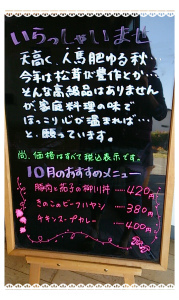 いらっしゃいませ
天高く、人馬肥ゆる秋…
今年は松茸が豊作とか…
そんな高級品はありません
が家庭料理の味で
ほっこり心が温まれば…
と、願っています。
尚、価格はすべて税込表示です。
10月のおすすめメニュー
豚肉と茄子の柳川丼 …… 420円
きのこのビーフハヤシ …… 380円
チキンスープカレー …… 400円